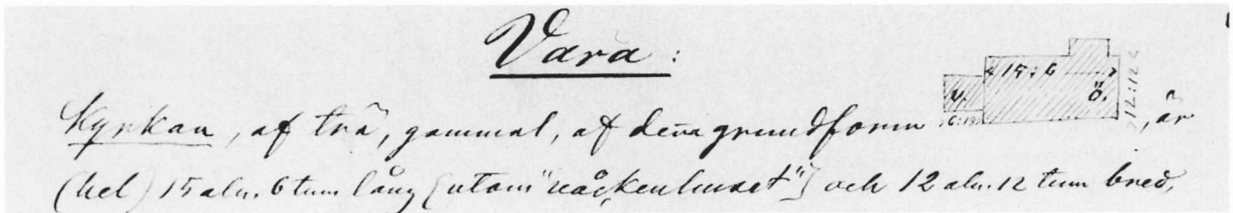 Vara:
Kyrkan, af trä, gammal, af denna grundform
15:6
v.
ö.
12:12
, är
(hel) 15 aln. 6 tum lång [utom "våckenhuset"] och 12 aln. 12 tum bred,